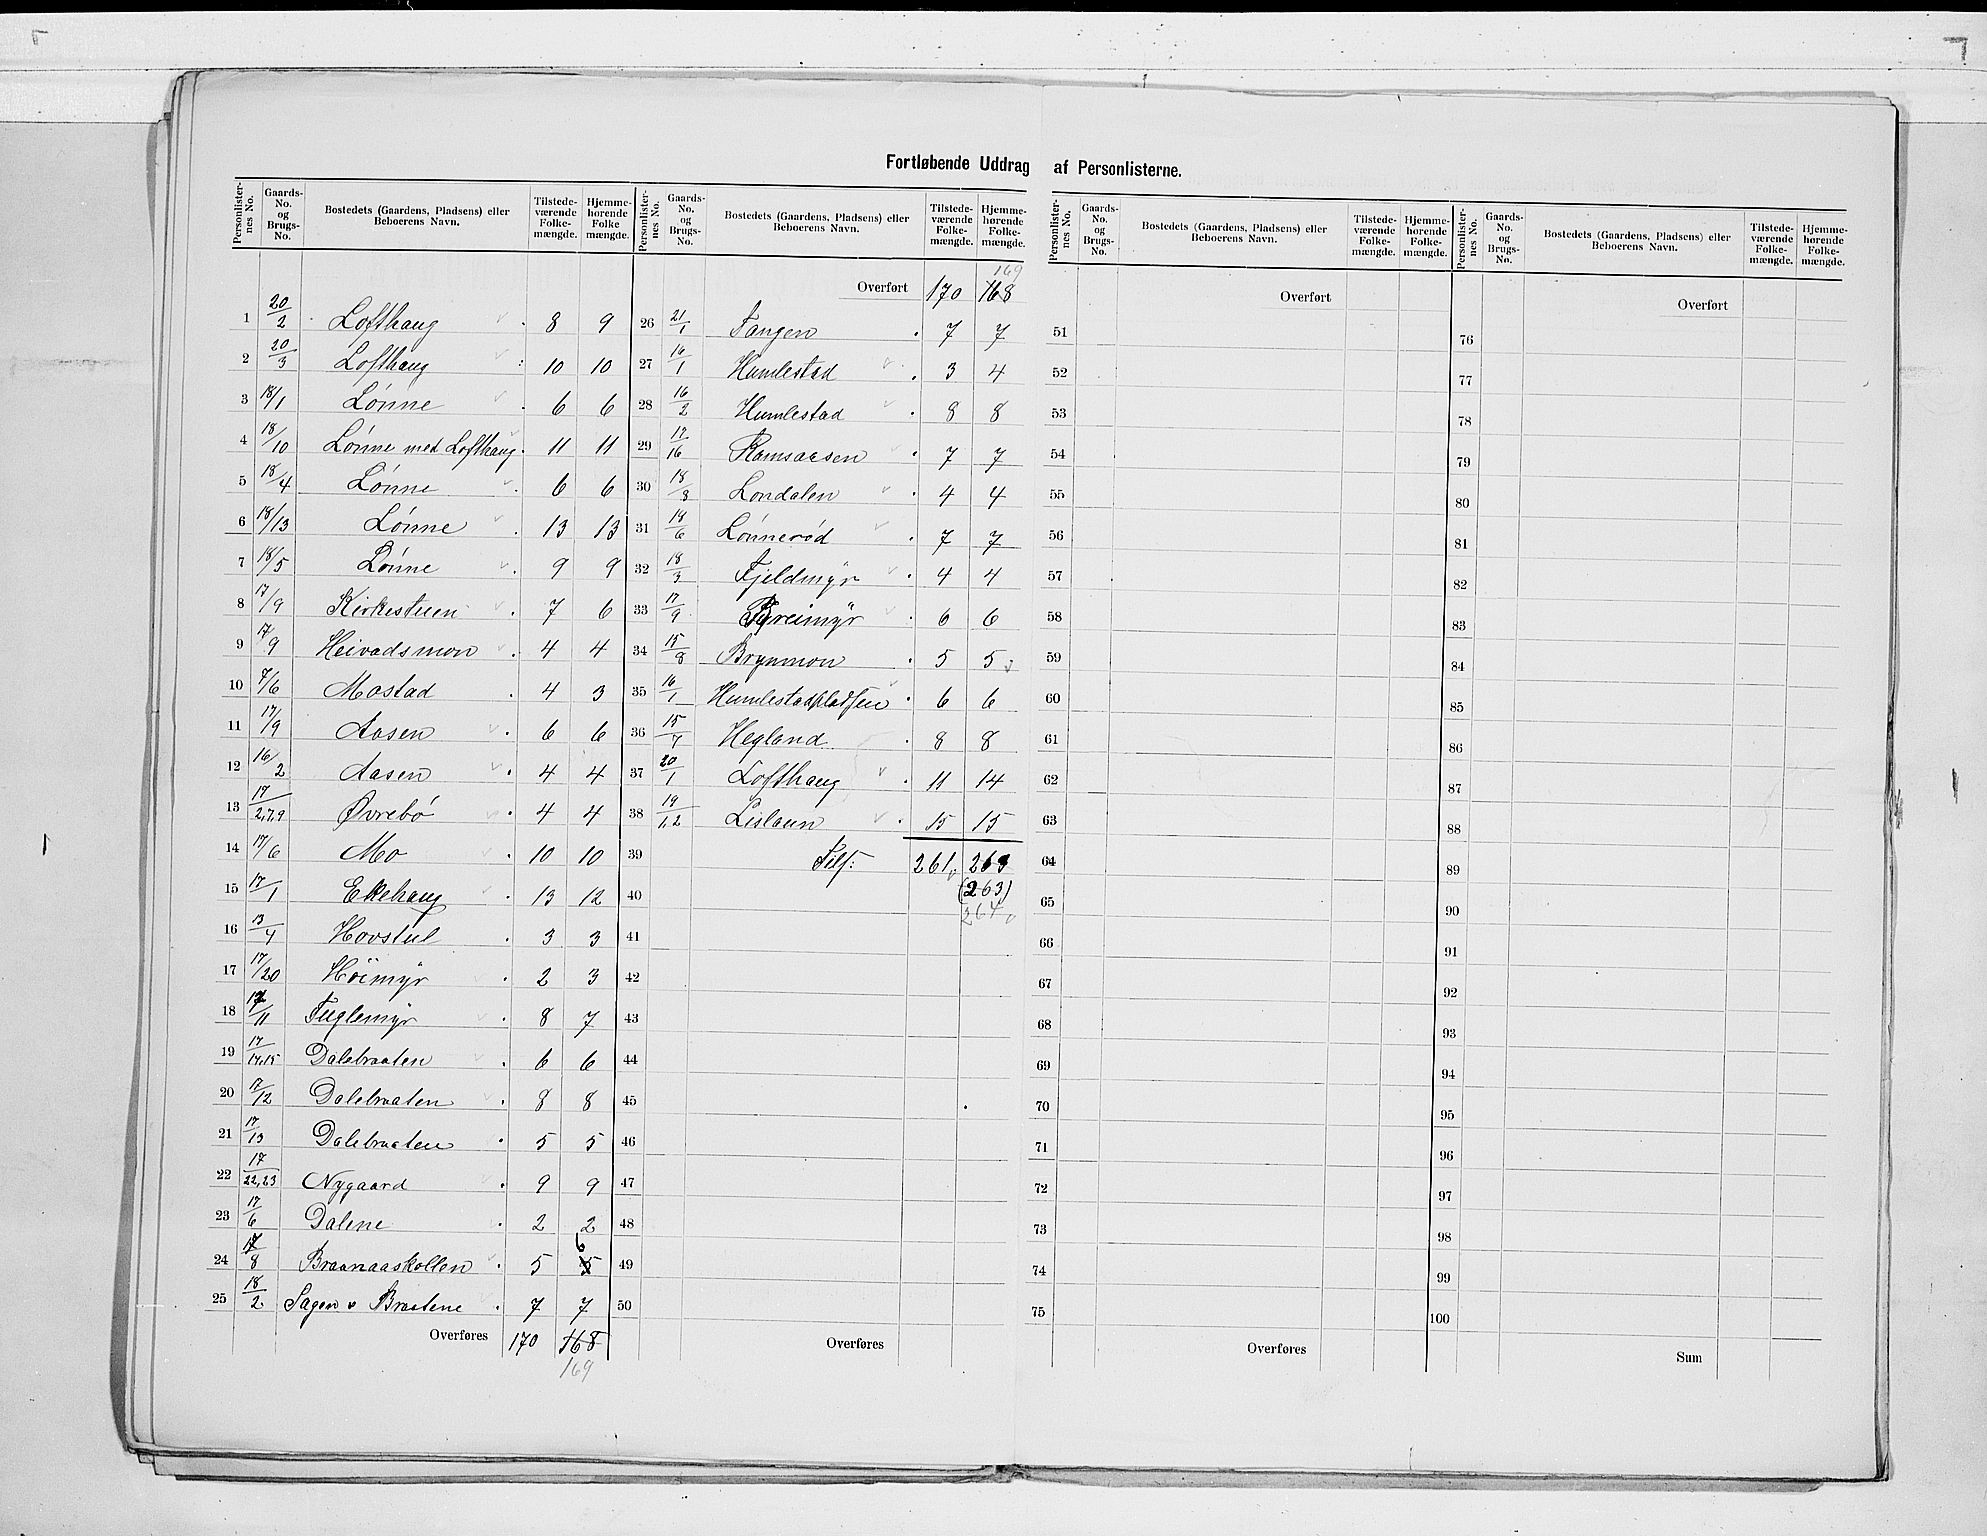 Fortløbende Uddrag af Personlisterne.
Personlister-nes No. Gaards-No. og Brugs-No. Bostedets (Gaardens, Pladsens) eller Beboerens Navn. Tilstede-værende Folke-mængde. Hjemme-hørende Folke mængde.
1 20/2 Lofthaug 8 9
2 20/3 Lofthaug 10 10
3 18/1 Lønne 6 6
4 18/10 Lønne med Lofthaug 11 11
5 18/4 Lønne 6 6
6 18/13 Lønne 13 13
7 18/5 Lønne 9 9
8 17/9 Kirkestuen 7 6
9 17/9 Heivadsmon 4 4
10 7/6 Mostad 4 3
11 17/9 Aasen 6 6
12 16/2 Aasen 4 4
13 17/2,7,9 Øvrebø 4 4
14 17/6 Mo 10 10
15 17/1 Ekehaug 13 12
16 13/4 Hovstul 3 3
17 17/20 Höimyr 2 3
18 17/11 Fuglemyr 8 7
19 17/14,15 Dalebraaten 6 6
20 17/12 Dalebraaten 8 8
21 17/13 Dalebraaten 5 5
22 17/22,23 Nygaard 9 9
23 17/6 Dalene 2 2
24 17/8 Braanaaskollen 5 5 6
25 18/2 Sagen v Braatene 7 7
Overføres 170 168
169
Personlister-nes No. Gaards-No. og Brugs-No. Bostedets (Gaardens, Pladsens) eller Beboerens Navn. Tilstede-værende Folke-mængde. Hjemme-hørende Folke-mængde.
169
Overført 170 168
26 21/1 Tangen 7 7
27 16/1 Humlestad 3 4
28 16/2 Humlestad 8 8
29 17/16 Ramsaasen 7 7
30 18/8 Londalen 4 4
31 18/6 Lønnerød 7 7
32 18/3 Fjeldmyr 4 4
33 17/9 Breimyr 6 6
34 15/8 Brynmon 5 5
35 16/1 Humlestadpladsen 6 6
36 15/7 Hegland 8 8
37 20/1 Lofthaug 11 14
38 19/1,2 Lislaun 15 15
39 Tils: 261 263
40 (263)
264
41
42
43
44
45
46
47
48
49
50
Overføres
Personlister-nes No. Gaards-No. og Brugs-No. Bostedets (Gaardens, Pladsens) eller Beboerens Navn. Tilstede-værende Folke-mængde. Hjemme-hørende Folke-mængde.
Overført
51
52
53
54
55
56
57
58
59
60
61
62
63
64
65
66
67
68
69
70
71
72
73
74
75
Overføres
Personlister-nes No. Gaards-No. og Brugs-No. Bostedets (Gaardens, Pladsens) eller Beboerens Navn. Tilstede-værende Folke-mængde. Hjemme-hørende Folke-mængde.
Overført
76
77
78
79
80
81
82
83
84
85
86
87
88
89
90
91
92
93
94
95
96
97
98
99
100
Sum